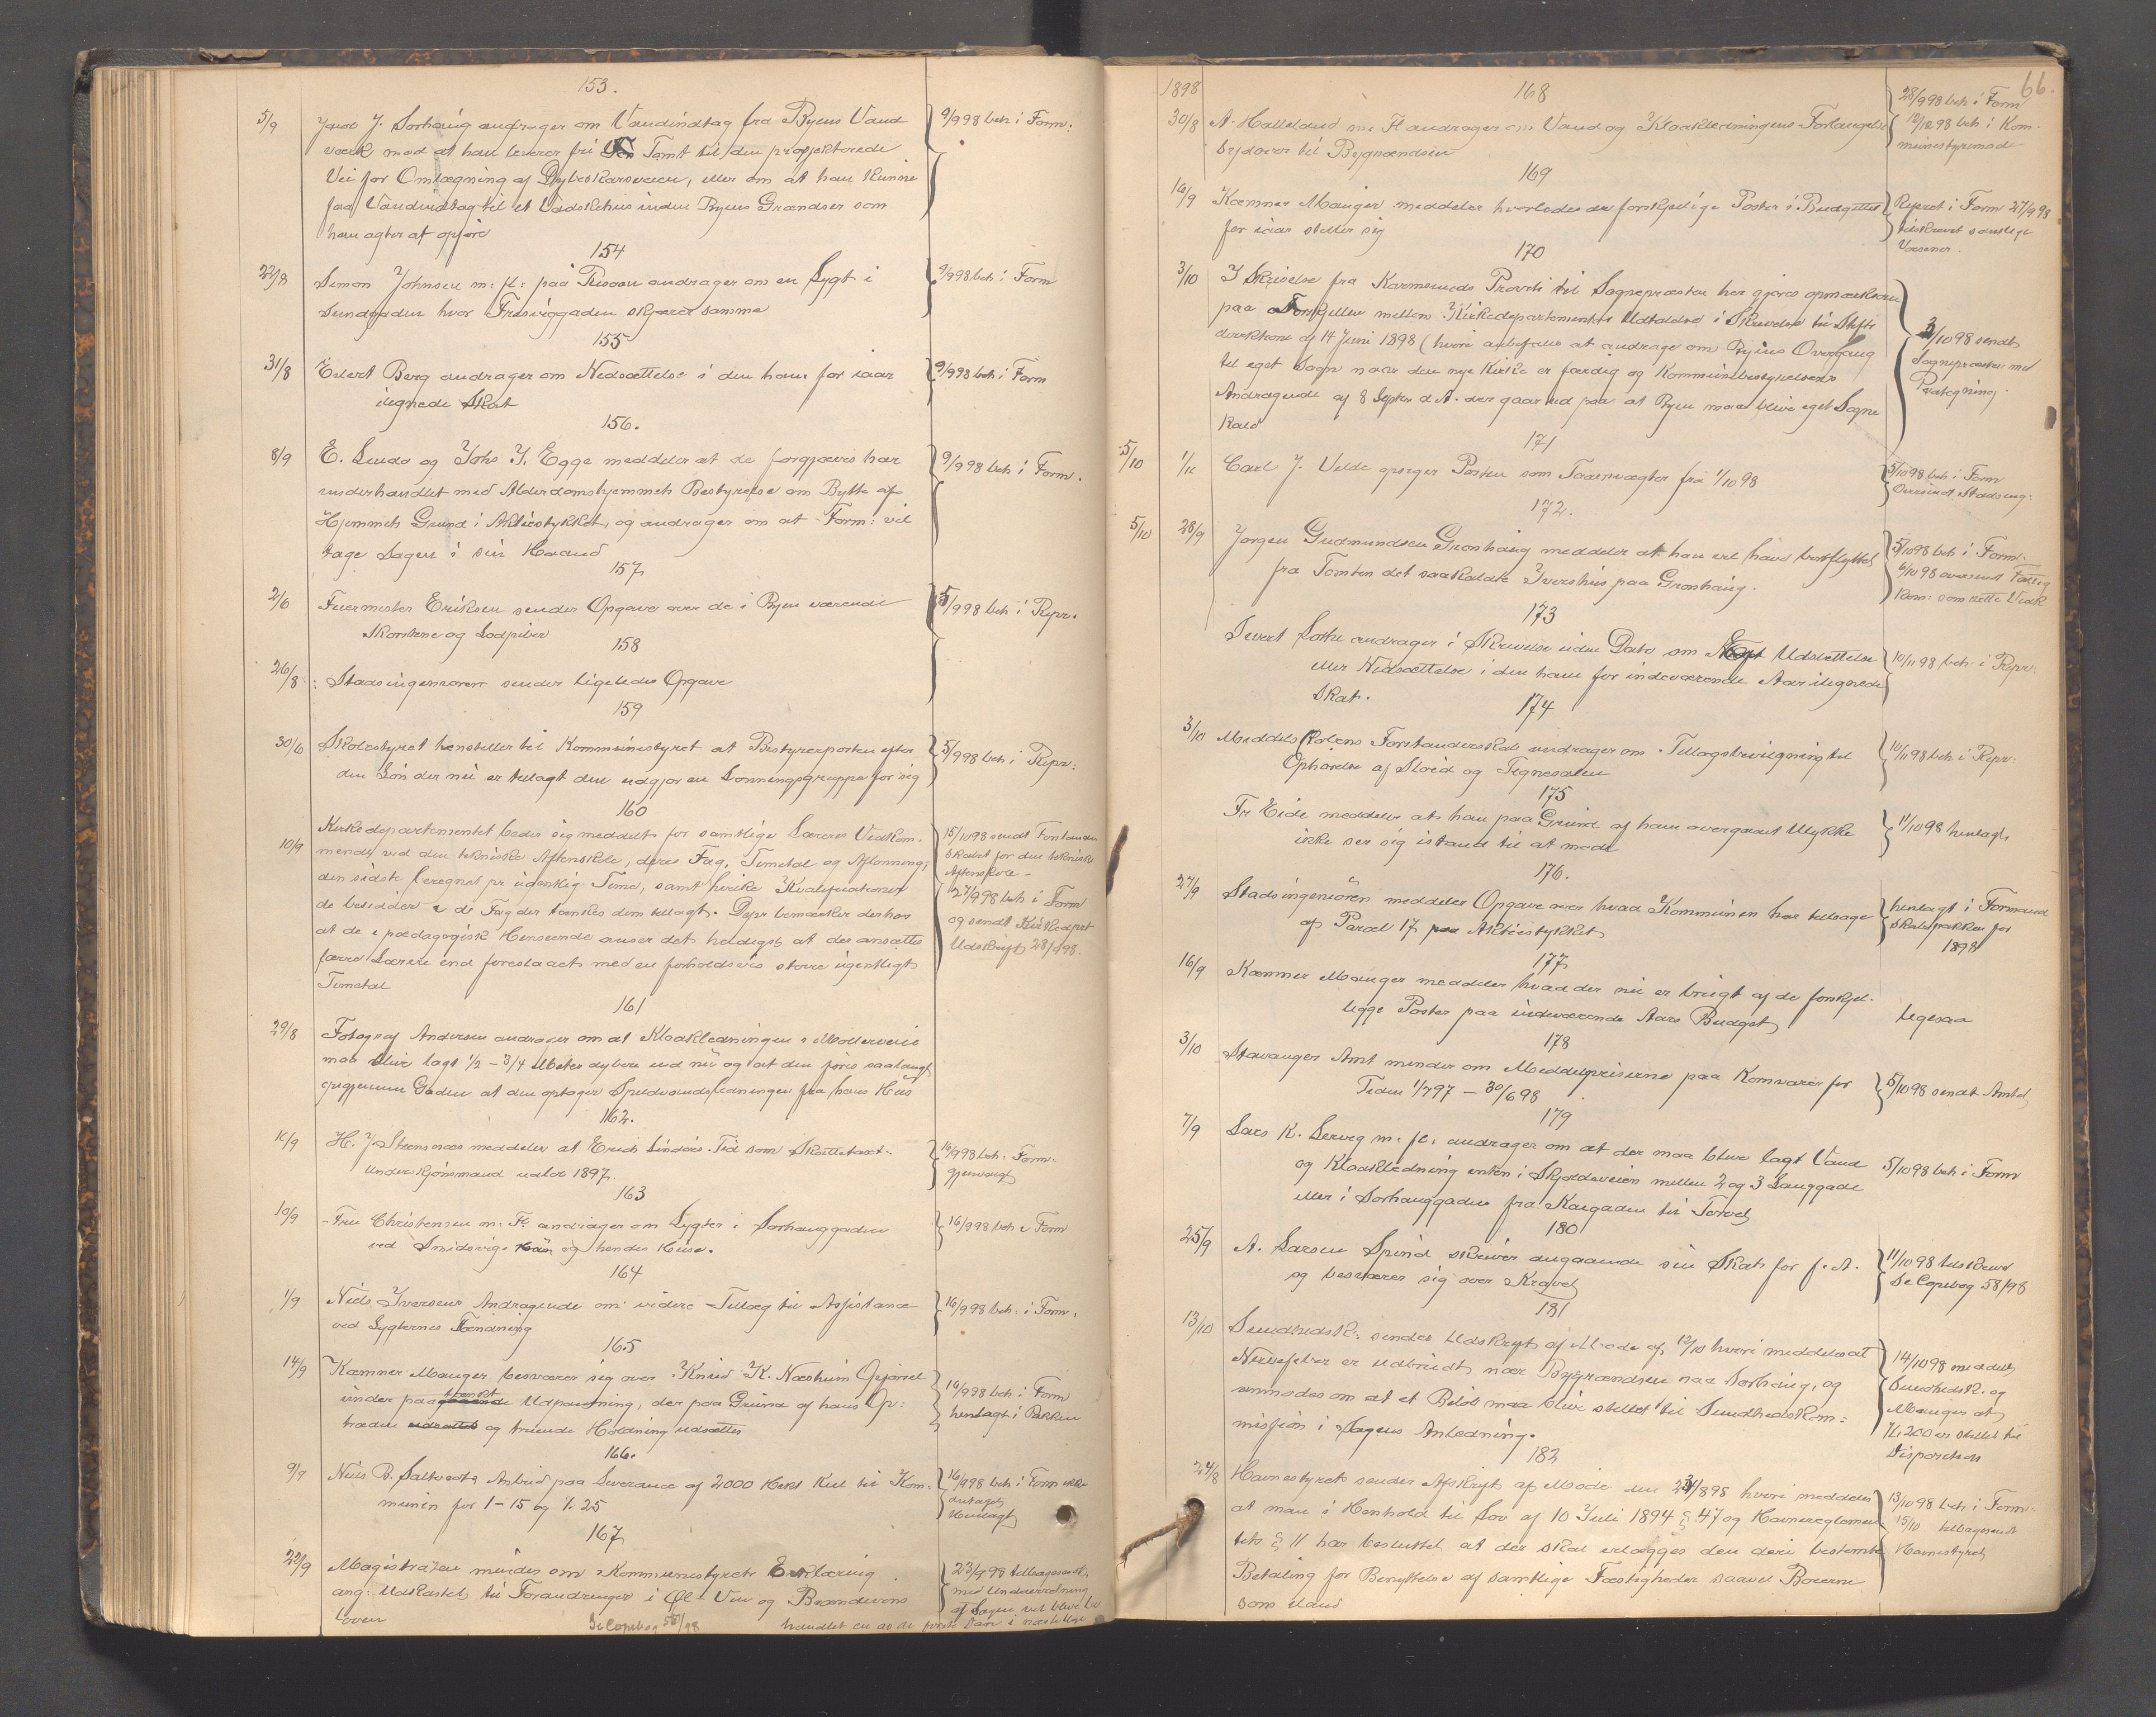 153.
5/9 Jacob J. Sorhaug andrager om Vandindtag fra Byens Vand
værk mod at han leverer fri Tomt til den projekterede
Vei for Omlægning af Dybeskarsveien, eller om at han kunne
faa Vandindtag til et Vadskehus inden Byens Grændser som
han agter at opføre
9/9 98 beh i Form:
154
22/8 Simon Johnsen m. fl. paa Risøen andrager om en Lygt i
Sundgaden hvor Fresviggaden skjærer samme
9/9 98 beh i Form
155
31/8 Edert Berg andrager om Nedsættelse i den ham for iaar
ilignede Skat
9/9 98 beh i Form
156.
8/9 E. Lundo og Johs J. Egge meddeler at de forgjæves har
underhandlet med Alderdomshjemmets Bestyrelse om Bytte af
Hjemmets Grund i Aktiestykket, og andrager om at Form: vil
tage Sagen i sin Haand
9/9 98 beh i Form.
157
2/6 Feiermester Eriksen sender Opgave over de i Byen værende
Skorstene og Lodpiber
5/9 98 beh i Repr.
158
26/8 Stadsingeniøren sender ligeledes Opgave
159
30/6 Skolestyret henstiller til Kommunestyret at Bestyrerposten efter
den Løn der nu er tillagt den udgjør en Lønningsgruppe for sig
5/9 98 beh i Repr:
160
10/9 Kirkedepartementet beder sig meddelt for samtlige Lærere Vedkom-
mende ved den tekniske Aftenskole, deres Fag, Timetal og Aflønning,
den sidste beregnet pr ugentlig Time, samt hvilke Kvalifikationer
de besidder i de Fag der tænkes dem tillagt. Depr bemærker derhos
at de i pædagogisk Henseende anser det heldigst at der ansættes
færre Lærere end foreslaaet med en forholdsvis større ugentligt
Timetal
15/10 98 sendt Forstander
skabet for den tekniske
Aftenskole -
27/9 98 beh i Form
og sendt Kirkedept
Udskrift 28/9 98.
161
29/8 Fotograf Andersen andrager om at Kloakledningen i Møllerveien
maa blive lagt 1/2 - 3/4 Meter dybere end nu og at den føres saalangt
gjennem Gaden at den optager Spildevandsledningen fra hans Hus
162.
12/9 H. J. Steensnæs meddeler at Erich Lindøes Tid som Skattetaxt-
underskjønsmand udløb 1897.
16/9 98 beh. i Form.
gjenvalgt
163
10/9 Fru Christensen m. Fl andrager om Lygter i Sørhauggaden
ved Smidsvigs Hus og hendes Huse.
16/9 98 beh i Form
164
1/9 Niels Iversens Andragende om videre Tillæg til Assistance
ved Lygternes Tænding
16/9 98 beh. i Form.
165
14/9 Kæmner Mauger besværer sig over Knud K. Næsheim Gjøred
under paatænkt Udpantning, der paa Grund af hans Op:
træden og truende Holdning udsattes
16/9 98 beh i Form
henlagt i Pakken
166.
9/9 Niels B. Saltvedts Anbud paa Leverance af 2000 Hekt Kul til Kom:
munen for 1-15 og 1.25
16/9 98 beh i Form ikke
antaget
Henlagt
167
22/9 Magistraten minder om Kommunestyrets Erklæring
ang: Udkastet til Forandringer i Øl- Vin og Brændevins
loven
Se Copibog 55/98
23/9 98 tilbagesendt
med Underretning
af Sagen vil blive be
handlet en af de første Dage i næste Uge
66.
1898
168
30/8 A. Halleland m. Fl andrager om Vand og Kloakledningens Forlængelse
sydover til Bygrændsen
28/9 98 beh i Form
12/12 98 beh i Kom-
munestyremøde
169
16/9 Kæmner Mauger meddeler hvorledes de forskjellige Poster i Budgettet
for iaar stiller sig
Repret i Form 27/9 98
tilskrevet samtlige
Væsener.
170
3/10 I Skrivelse fra Karmsunds Provsti til Sognepræsten her gjøres opmærksom
paa Forskjellen mellem Kirkedepartementets Udtalelse i Skrivelse til Stifts
direktionen af 14 Juni 1898 (hvori anbefales at andrage om Byens Overgang
til eget Sogn naar den nye Kirke er færdig og Kommunebestyrelsens
Andragende af 8 Septer d. A. der gaar ud paa at Byen maa blive eget Sogne
kald
3/10 98 sendt
Sognepræsten med
Paategning.
171
5/10 1/10 Carl J. Velde opsiger Posten som Taarnvægter fra 1/10 98
5/10 98 beh i Form
Oversendt Stadsing:
172.
5/10 28/9 Jørgen Gudmundsen Grønhaug meddeler at han vil have bortflyttet
fra Tomten det saakaldte Ivershus paa Grønhaug.
5/10 98 beh i Form.
6/10 98 oversendt Fattig
Kom: som rette Vedk
173
Sivert Lothe andrager i Skrivelse uden Dato om Udsættelse
eller Nedsættelse i den ham for indeværende Aar ilignede
Skat.
10/11 98 beh i Repr:
174
3/10 Middelskolens Forstanderskab andrager om Tillægsbevilgning til
Ophørelse af Sløid og Tegnesalen
10/11 98 beh i Repr:
175
Fr Eide meddeler at han paa Grund af ham overgaaet Ulykke
ikke ser sig istand til at møde
11/10 98 henlagt
176.
27/9 Stadsingeniøren meddeler Opgave over hvad Kommunen har tilsage
af Parcel 17 paa Aktiestykket
henlagt i Formand
skabspakken for
1898
177
16/9 Kæmner Mauger meddeler hvad der nu er brugt af de forskjel-
lige Poster paa indeværende Aars Budget
ligesaa
178
3/10 Stavanger Amt minder om Middelpriserne paa Kornvarer for
Tiden 1/7 97 - 30/6 98.
5/10 98 sendt Amtet
179
7/9 Lars K. Lervig m. fl. andrager om at der maa blive lagt Vand
og Kloakledning enten i Skjoldeveien mellem 2 og 3 Langgade
eller i Sørhauggaden fra Kaigaden til Torvet
5/10 98 beh i Form
180
25/9 A. Larsen Spind skriver angaaende sin Skat for f. A.
og besværer sig over Kravet
11/10 98 tilskrevet
Se Copibog 58/98
181
13/10 Sundhedsk: sender Udskrift af Møde af 12/10 hvori meddeles at
Nervefeber er udbrudt nær Bygrændsen paa Sørhaug, og
anmodes om at et Beløb maa blive stillet til Sundhedskom:
mission i Sagens Anledning.
14/10 98 meddelt
Sundhedsk. og
Mauger at
Kr. 200 er stillet til
Disposition
182
24/8 Havnestyret sender Afskrift af Møde den 23/8 98 hvori meddeles
at man i Henhold til Lov af 10 Juli 1894 § 47 og Havnereglemen
tets § 11 har besluttet at der skal erlægges den deri bestemte
Betaling for Benyttelse af samtlige Fæstigheder saavel Bøierne
som iland
13/10 98 beh i Form:
15/10 tilbagesendt
Havnestyret